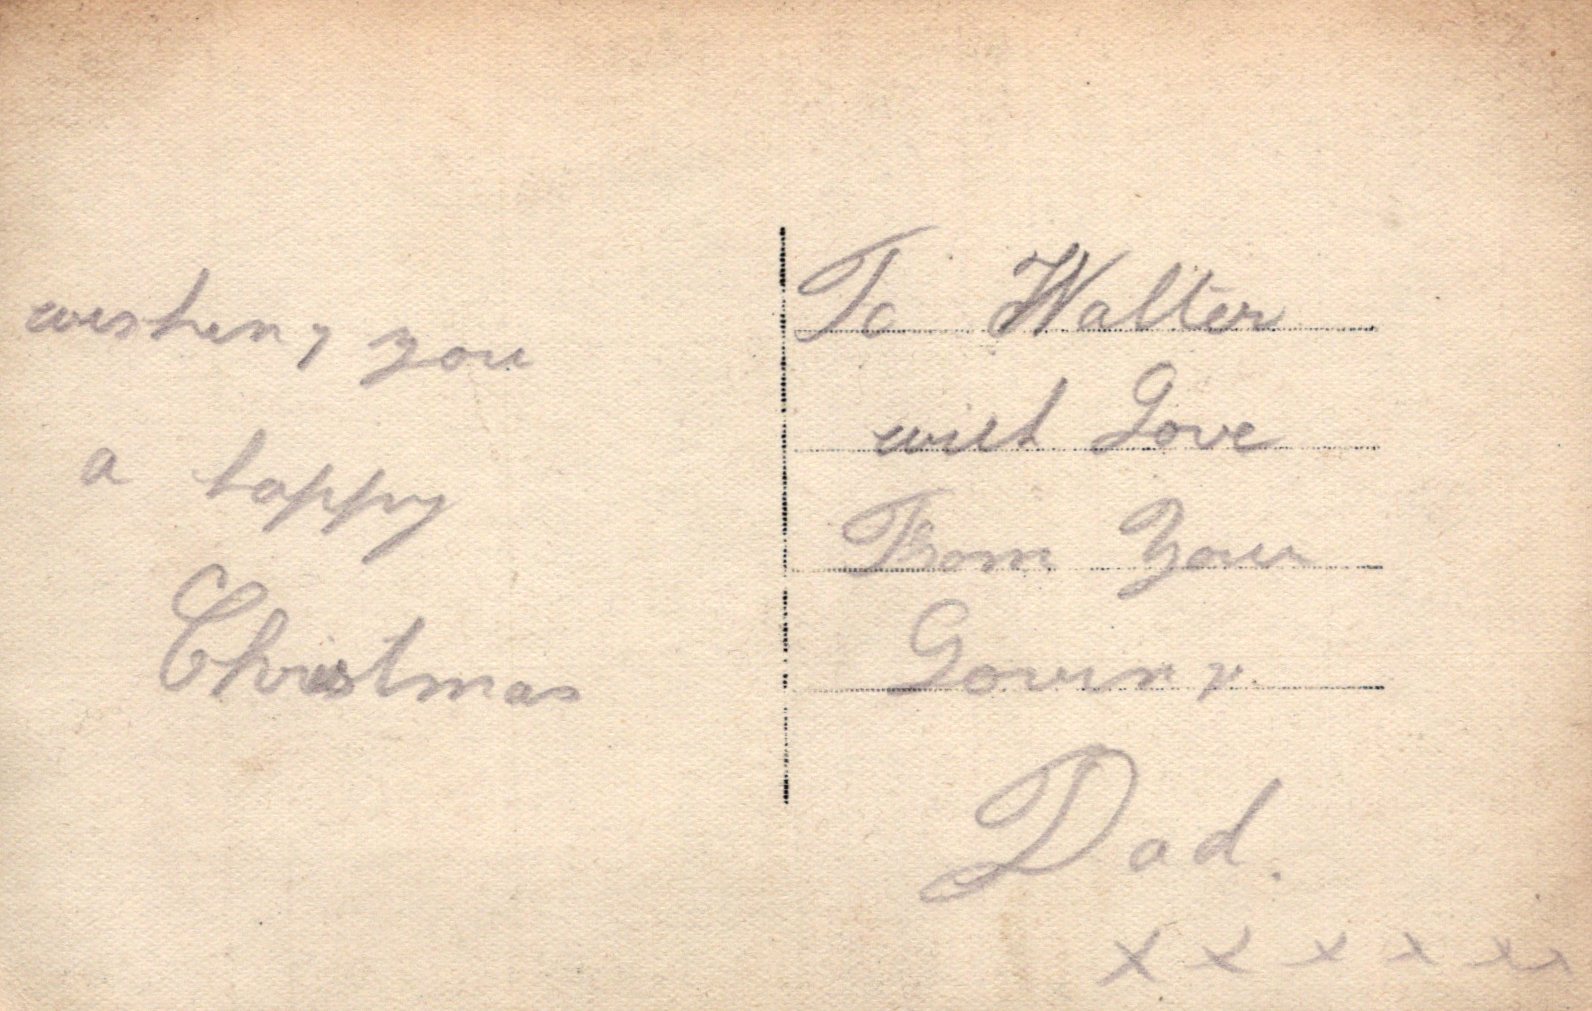 wishing you
a happy
Christmas
To Walter
with Love
From Your
Dad.
x x x x x x